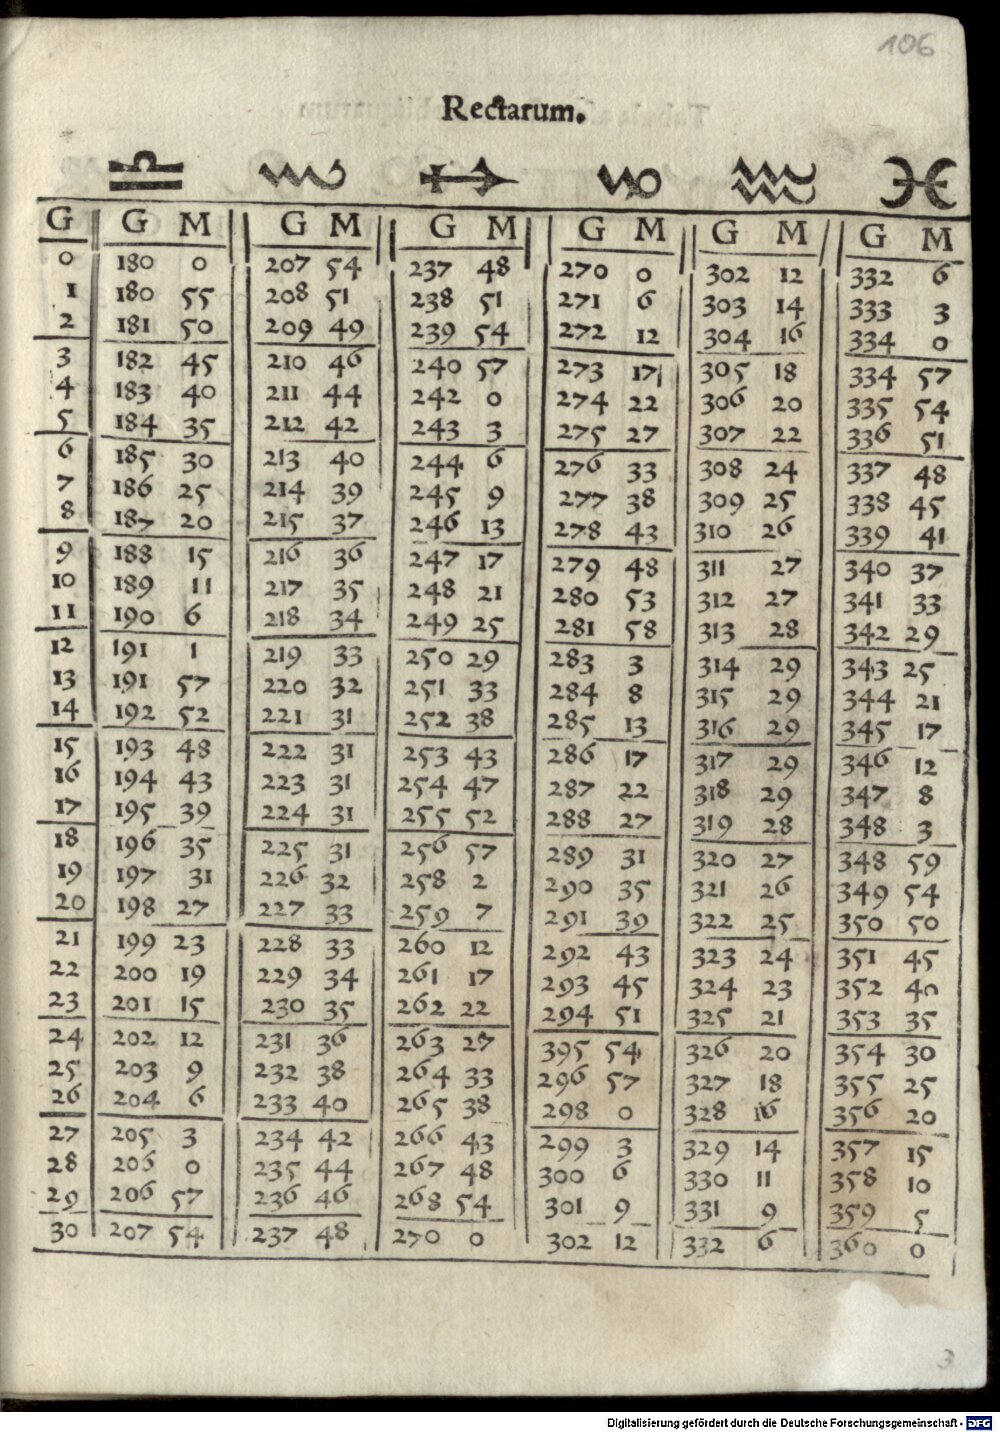 106
Rectarum.
♎ ♏ ♐ ♑ ♒ ♓
G G M G M G M G M G M G M
0 180 0 207 54 237 48 270 0 302 12 332 6
1 180 55 208 51 238 51 271 6 303 14 333 3
2 181 50 209 49 239 54 272 12 304 16 334 0
3 182 45 210 46 240 57 273 17 305 18 334 57
4 183 40 211 44 242 0 274 22 306 20 335 54
5 184 35 212 42 243 3 275 27 307 22 336 51
6 185 30 213 40 244 6 276 33 308 24 337 48
7 186 25 214 39 245 9 277 38 309 25 338 45
8 187 20 215 37 246 13 278 43 310 26 339 41
9 188 15 216 36 247 17 279 48 311 27 340 37
10 189 11 217 35 248 21 280 53 312 27 341 33
11 190 6 218 34 249 25 281 58 313 28 342 29
12 191 1 219 33 250 29 283 3 314 29 343 25
13 191 57 220 32 251 33 284 8 315 29 344 21
14 192 52 221 31 252 38 285 13 316 29 345 17
15 193 48 222 31 253 43 286 17 317 29 346 12
16 194 43 223 31 254 47 287 22 318 29 347 8
17 195 39 224 31 255 52 288 27 319 28 348 3
18 196 35 225 31 256 57 289 31 320 27 348 59
19 197 31 226 32 258 2 290 35 321 26 349 54
20 198 27 227 33 259 7 291 39 322 25 350 50
21 199 23 228 33 260 12 292 43 323 24 351 45
22 200 19 229 34 261 17 293 45 324 23 352 40
23 201 15 230 35 262 22 294 51 325 21 353 35
24 202 12 231 36 263 27 395 54 326 20 354 30
25 203 9 232 38 264 33 296 57 327 18 355 25
26 204 6 233 40 265 38 298 0 328 16 356 20
27 205 3 234 42 266 43 299 3 329 14 357 15
28 206 0 235 44 267 48 300 6 330 11 358 10
29 206 57 236 46 268 54 301 9 331 9 359 5
30 207 54 237 48 270 0 302 12 332 6 360 0
3
Digitalisierung gefördert durch die Deutsche Forschungsgemeinschaft - DFG